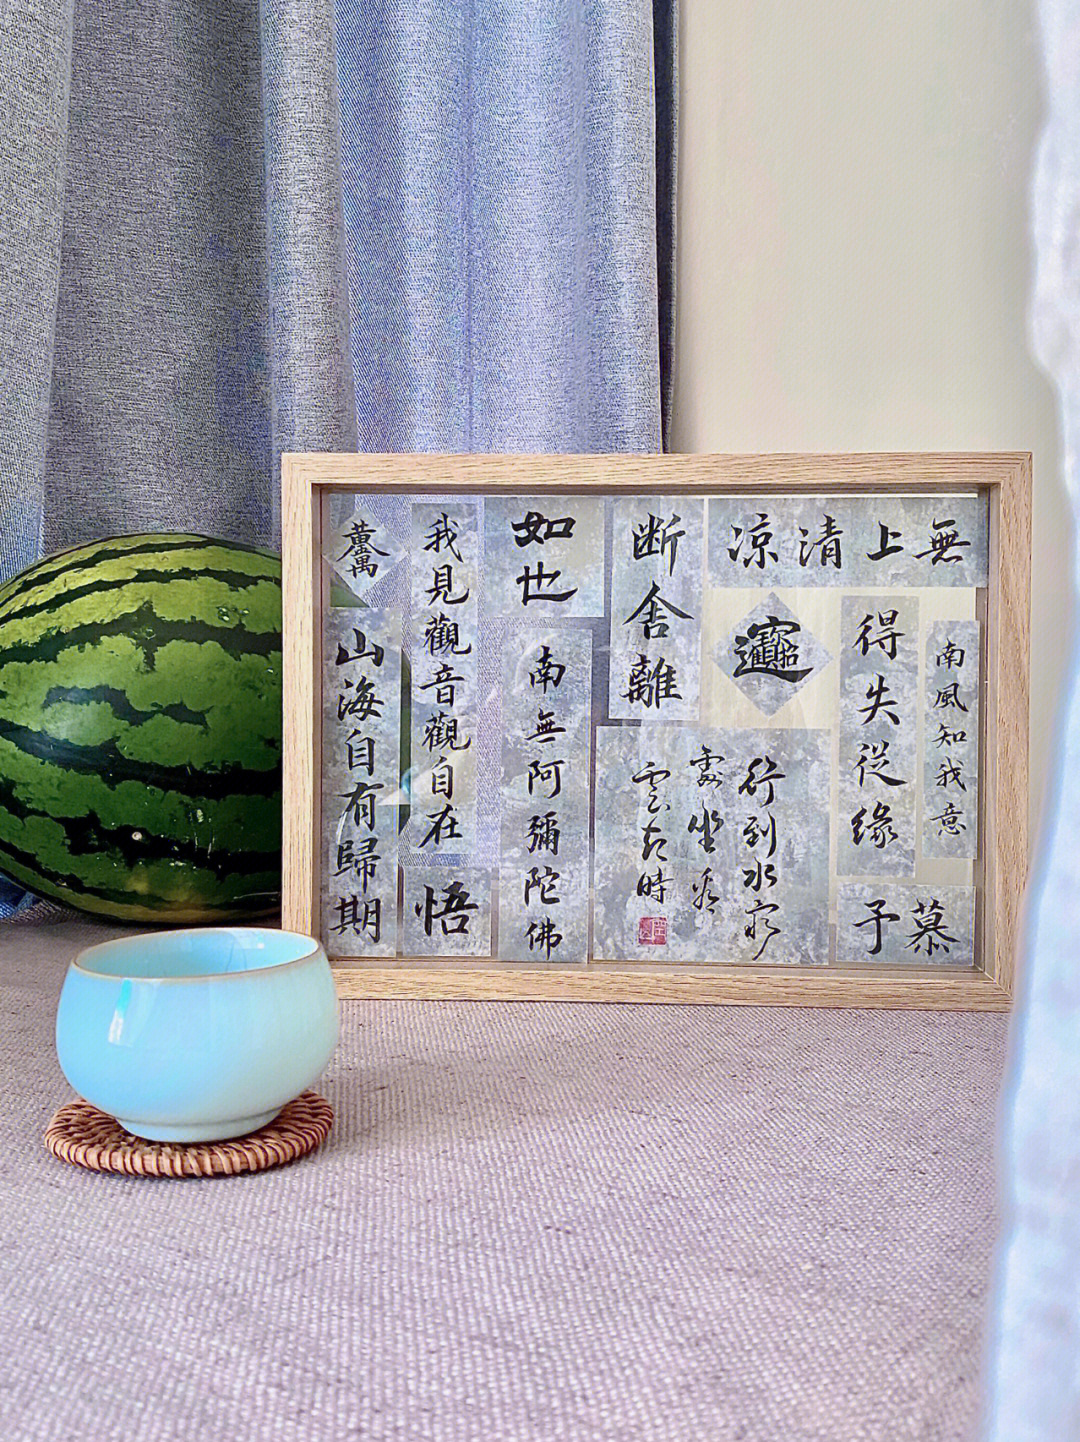 無上清涼
南風知我意
得失從緣
慕予
招財進寶
行到水窮
處坐看
雲起時
断舍離
如也
南無阿彌陀佛
我見觀音觀自在
悟
山海自有歸期
黃金萬